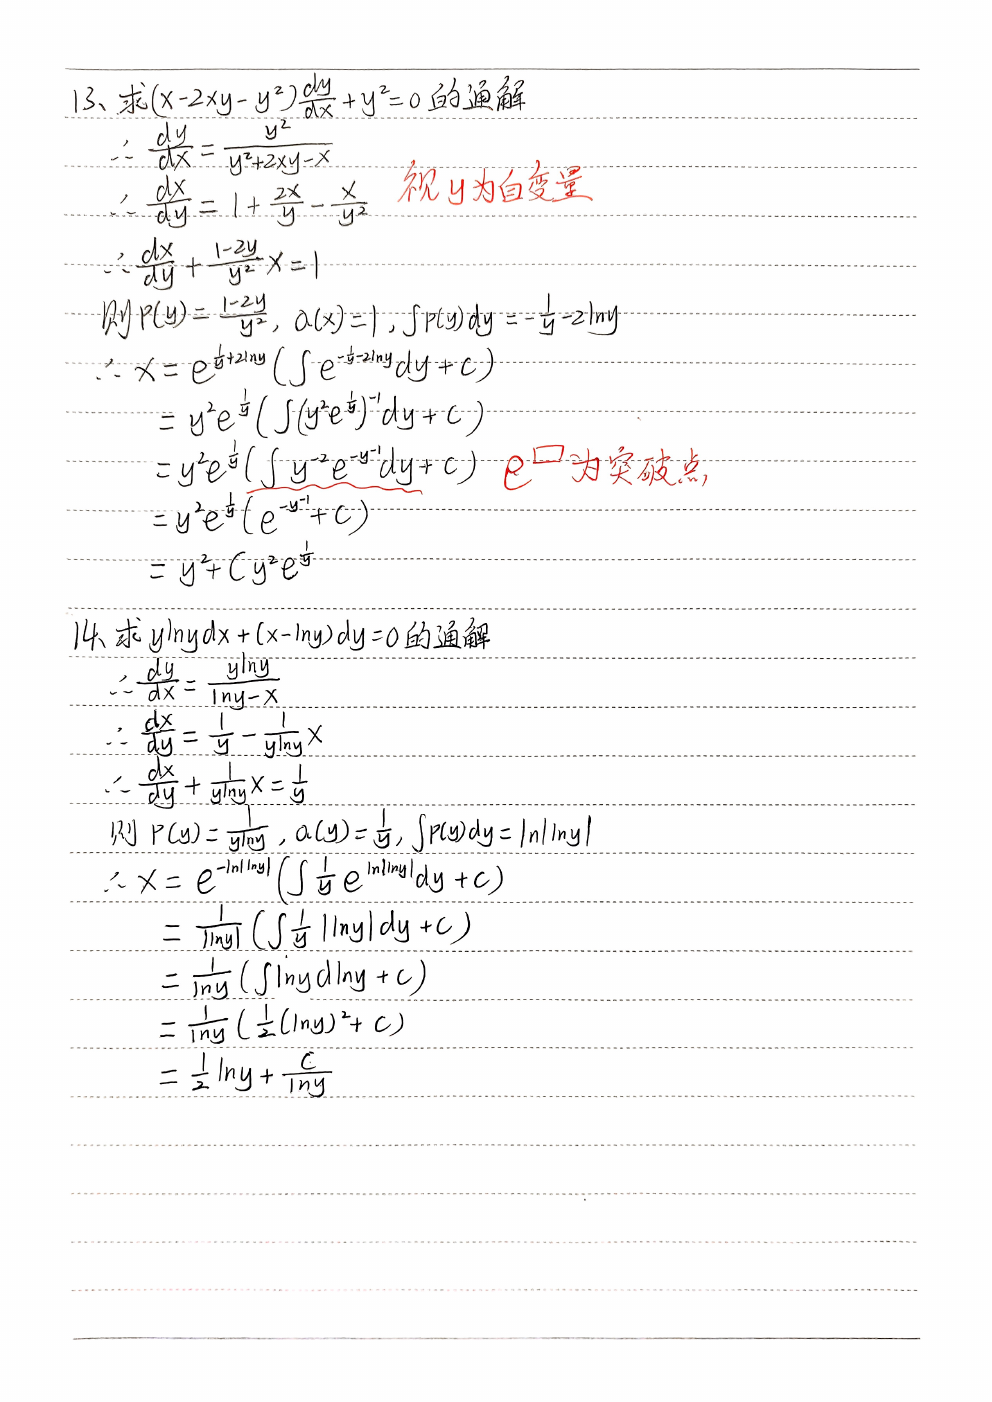 13、求(x-2xy-y²)dy/dx+y²=0的通解
∴ dy/dx = y²/(y²+2xy-x)
∴ dx/dy = 1+2x/y-x/y² 视y为自变量
∴ dx/dy+(1-2y)/y² x=1
则P(y)=(1-2y)/y², Q(x)=1, ∫P(y)dy=-1/y-2lny
∴ x=e^(1/y+2lny)(∫e^(-1/y-2lny)dy+C)
=y²e^(1/y)(∫(y²e^(1/y))^(-1)dy+C)
=y²e^(1/y)(∫y^(-2)e^(-y^(-1))dy+C) e^□为突破点
=y²e^(1/y)(e^(-y^(-1))+C)
=y²+Cy²e^(1/y)
14、求ylnydx+(x-lny)dy=0的通解
∴ dy/dx = ylny/(lny-x)
∴ dx/dy = 1/y - 1/(ylny) x
∴ dx/dy + 1/(ylny) x = 1/y
则P(y)=1/(ylny), Q(y)=1/y, ∫P(y)dy=ln|lny|
∴ x=e^(-ln|lny|)(∫1/y e^(ln|lny|)dy+C)
=1/|lny|(∫1/y |lny|dy+C)
=1/lny(∫lnydlny+C)
=1/lny(1/2(lny)²+C)
=1/2 lny+C/lny